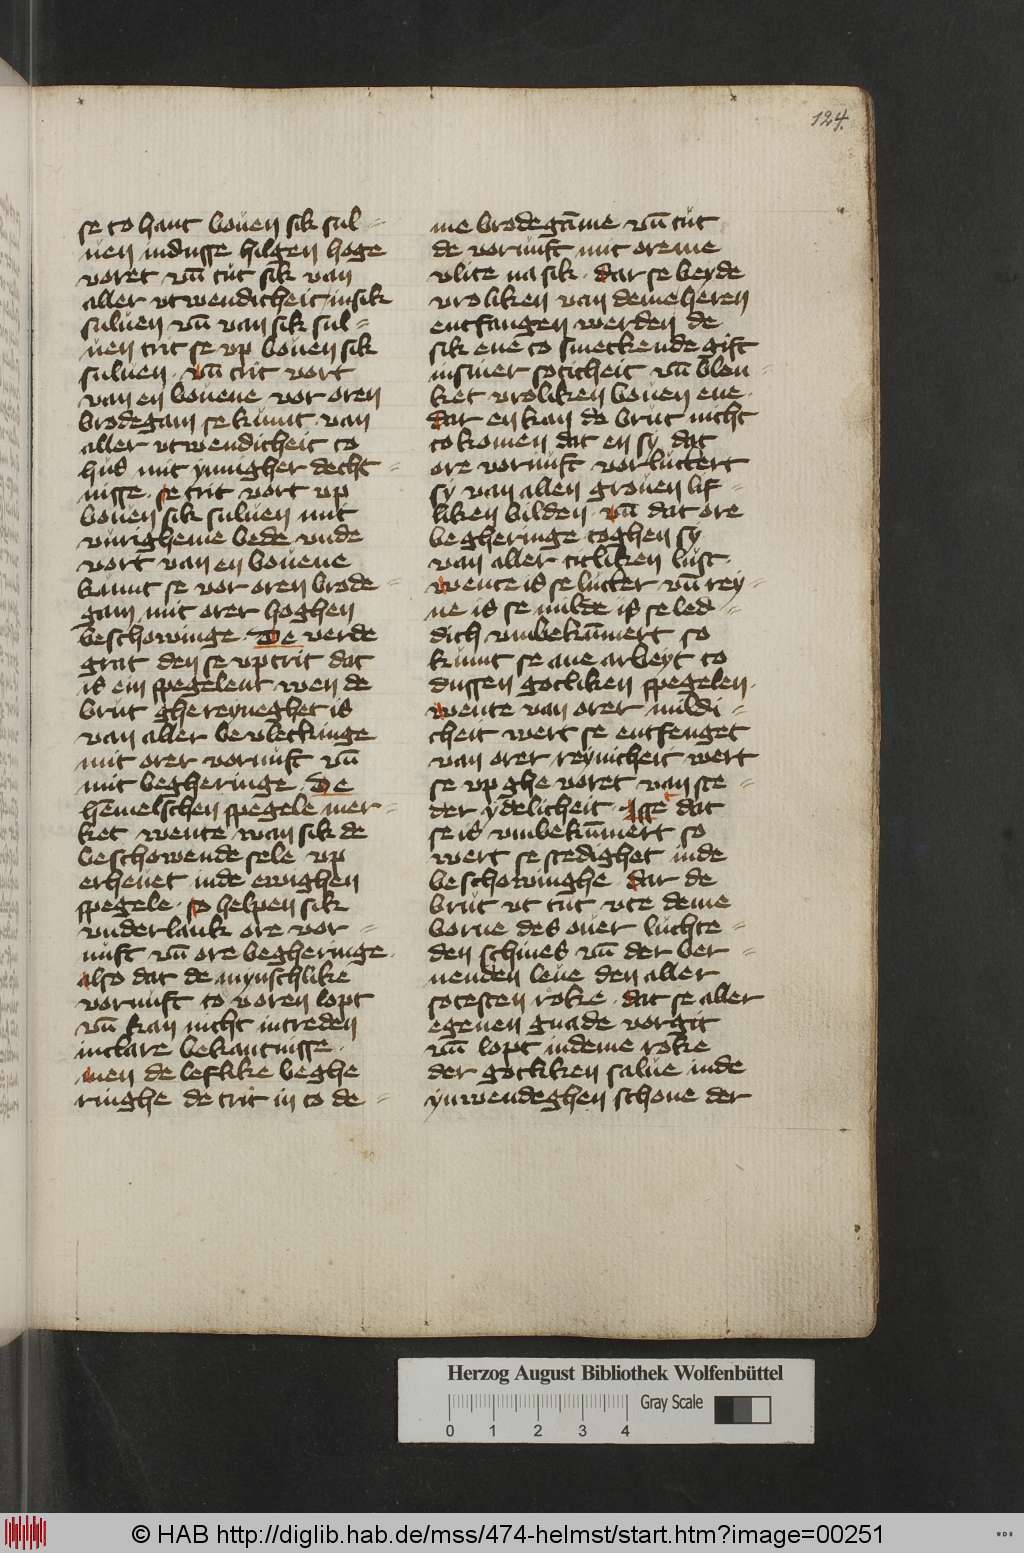 124.
se to hant bouen sik sul=
uen in dusse hilgen hoge
voret vn̄ tut sik van
aller vtwendicheit in sik
suluen vn̄ van sik sul=
uen trit se vp bouen sik
suluen. vn̄ trit vort
van en bouene vor oren
brodegam se kumt van
aller vtwendicheit to
hus mit ynnigher decht=
nisse. se trit vort vp
bouen sik suluen mit
vurigheme bede vnde
vort van en bouene
kumt se vor oren brode=
gam mit orer hoghen
beschowinge. De verde
grat den se vp trit dat
is ein spegelent wen de
brut ghereyneghet is
van aller bevleckinge
mit orer vornuft vn̄
mit begheringe. De
hēmelschen spegele mer=
ket wente wan sik de
beschowende sele vp
erheuet in de ewighen
spegele. so helpen sik
vnderlank ore vor=
nuft vn̄ ore begheringe.
also dat de mynschlike
vornuft to voren lopt
vn̄ kan nicht in treden
in clare bekantnisse.
men de leflike beghe
ringhe de trit in to de=
me brodegāme vn̄ tut
de vornuft mit oreme
vlite na sik. dar se beyde
vroliken van deme heren
entfangen werden de
sik ene to smeckende gift
in siner soticheit vn̄ blen=
ket vroliken bouen ene.
dar en kan de brut nicht
to komen dat en sy dat
ore vornuft vorluttert
sy van allen grouen lif=
liken bilden. vn̄ dat ore
begheringe toghen sy
van aller titliken lust.
wente is se lutter vn̄ rey=
ne is se milde is se led=
dich vmbekūmert so
kumt se ane arbeyt to
dussen gotliken spegelen.
wente van orer mildi=
cheit wert se entfenget
van orer reynicheit wert
se vp ghe voret van ste=
der ydelicheit. Isse dat
se is vmbekūmert so
wert se stedighet in de
beschowinghe. dar de
brut vt tut vte deme
borne des ouer luchte=
den schines vn̄ der ber=
nenden leue den aller
sotesten roke. dat se aller
egenen gnade vorgit
vn̄ lopt in deme roke
der gotliken salue in de
ynwendeghen schone der
Herzog August Bibliothek Wolfenbüttel
0 1 2 3 4
Gray Scale
© HAB http://diglib.hab.de/mss/474-helmst/start.htm?image=00251